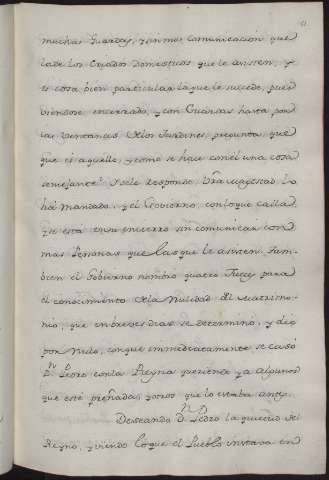 muchas Guardas, y sin mas comunicacion que
la de los Criados domesticos que le asisten, y
es cosa bien particular la que le sucede, pues
viendose encerrado, y con Guardas hasta por
las Ventanas de los Jardines, pregunta, que
que es aquello, y como se hace con el una cosa
semejante? Y se le responde, Vra Magestad lo
há Mandado, y el Govierno, con lo que calla,
y se está en su encierro sin comunicar con
mas Personas que las que le asisten. Tam-
bien el Gobierno nombró quatro Jueces para
el conocimiento de la Nulidad del Matrimo-
nio, que en breves dias se determinó, y dió
por Nulo, con que immediatamente se casó
Dn. Pedro con la Reyna queriendo ya algunos
que esté preñada, y otros que lo estaba antes.
Deseando Dn. Pedro la quietud del
Reyno, y viendo lo que el Pueblo instava en